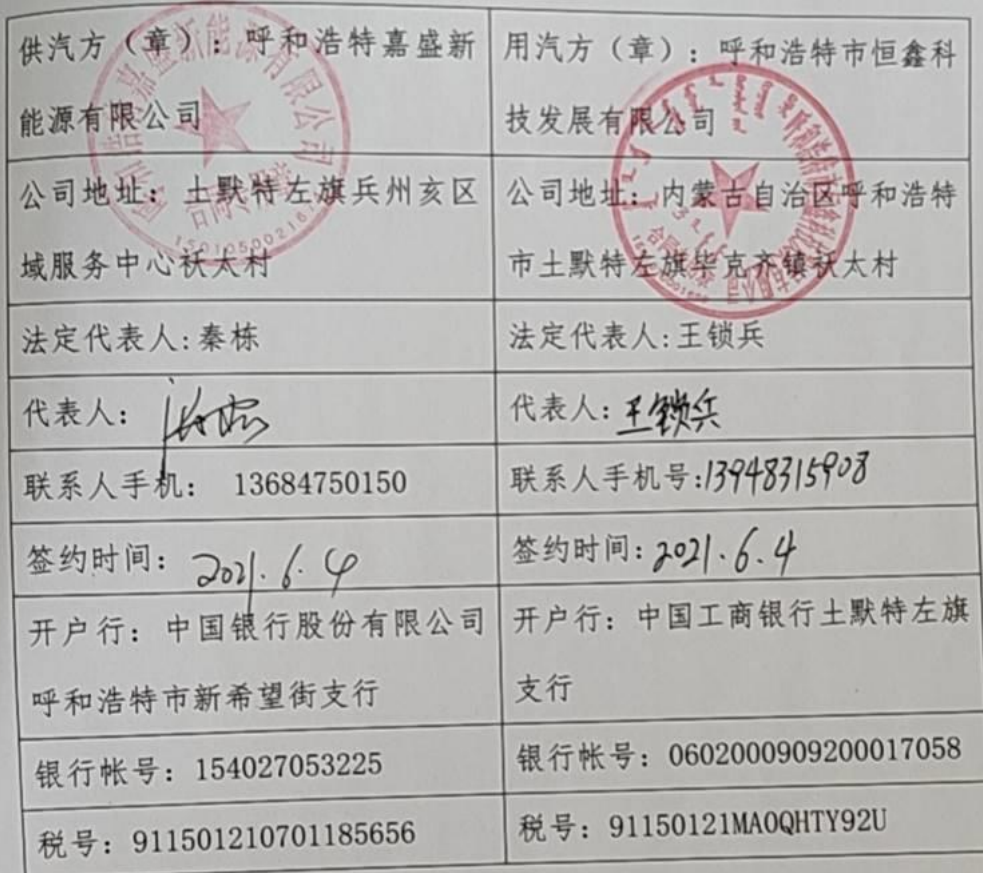 供汽方（章）：呼和浩特嘉盛新
能源有限公司
用汽方（章）：呼和浩特市恒鑫科
技发展有限公司
公司地址：土默特左旗兵州亥区
域服务中心袄太村
公司地址：内蒙古自治区呼和浩特
市土默特左旗毕克齐镇袄太村
法定代表人：秦栋
法定代表人：王锁兵
代表人：
代表人：王锁兵
联系人手机： 13684750150
联系人手机号：13948315908
签约时间：2021.6.4
签约时间：2021.6.4
开户行：中国银行股份有限公司
呼和浩特市新希望街支行
开户行：中国工商银行土默特左旗
支行
银行帐号：154027053225
银行帐号：0602000909200017058
税号：911501210701185656
税号：91150121MA0QHTY92U